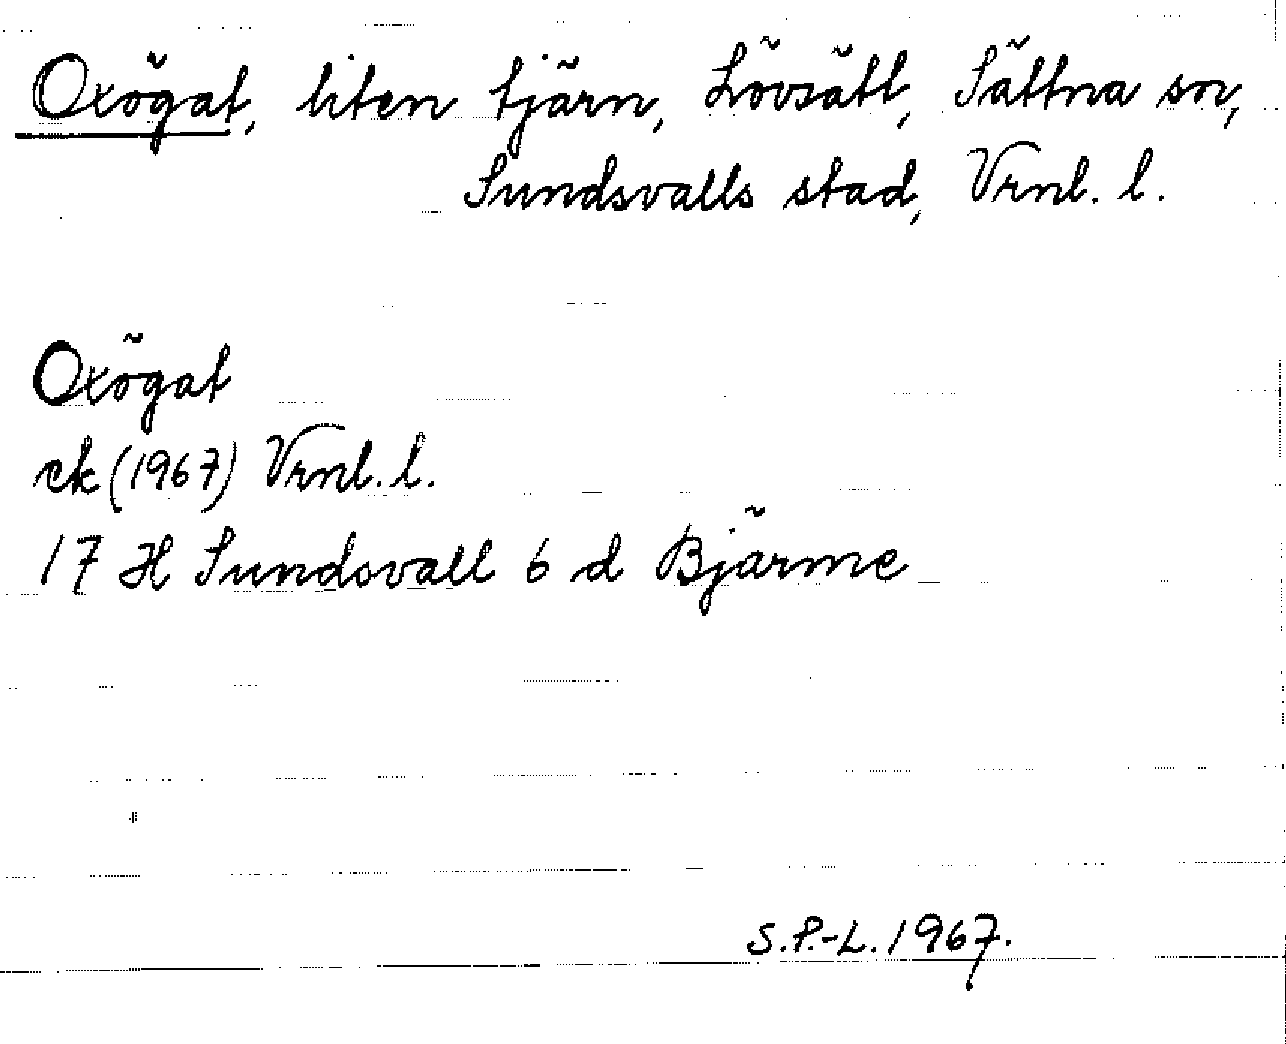 Oxögat, liten tjärn, Lövsätt, Sättna sn,
Sundsvalls stad, Vrnl. l.
Oxögat
ek (1967) Vrnl. l.
17 H Sundsvall 6 d Bjärme
S.P.-L. 1967.